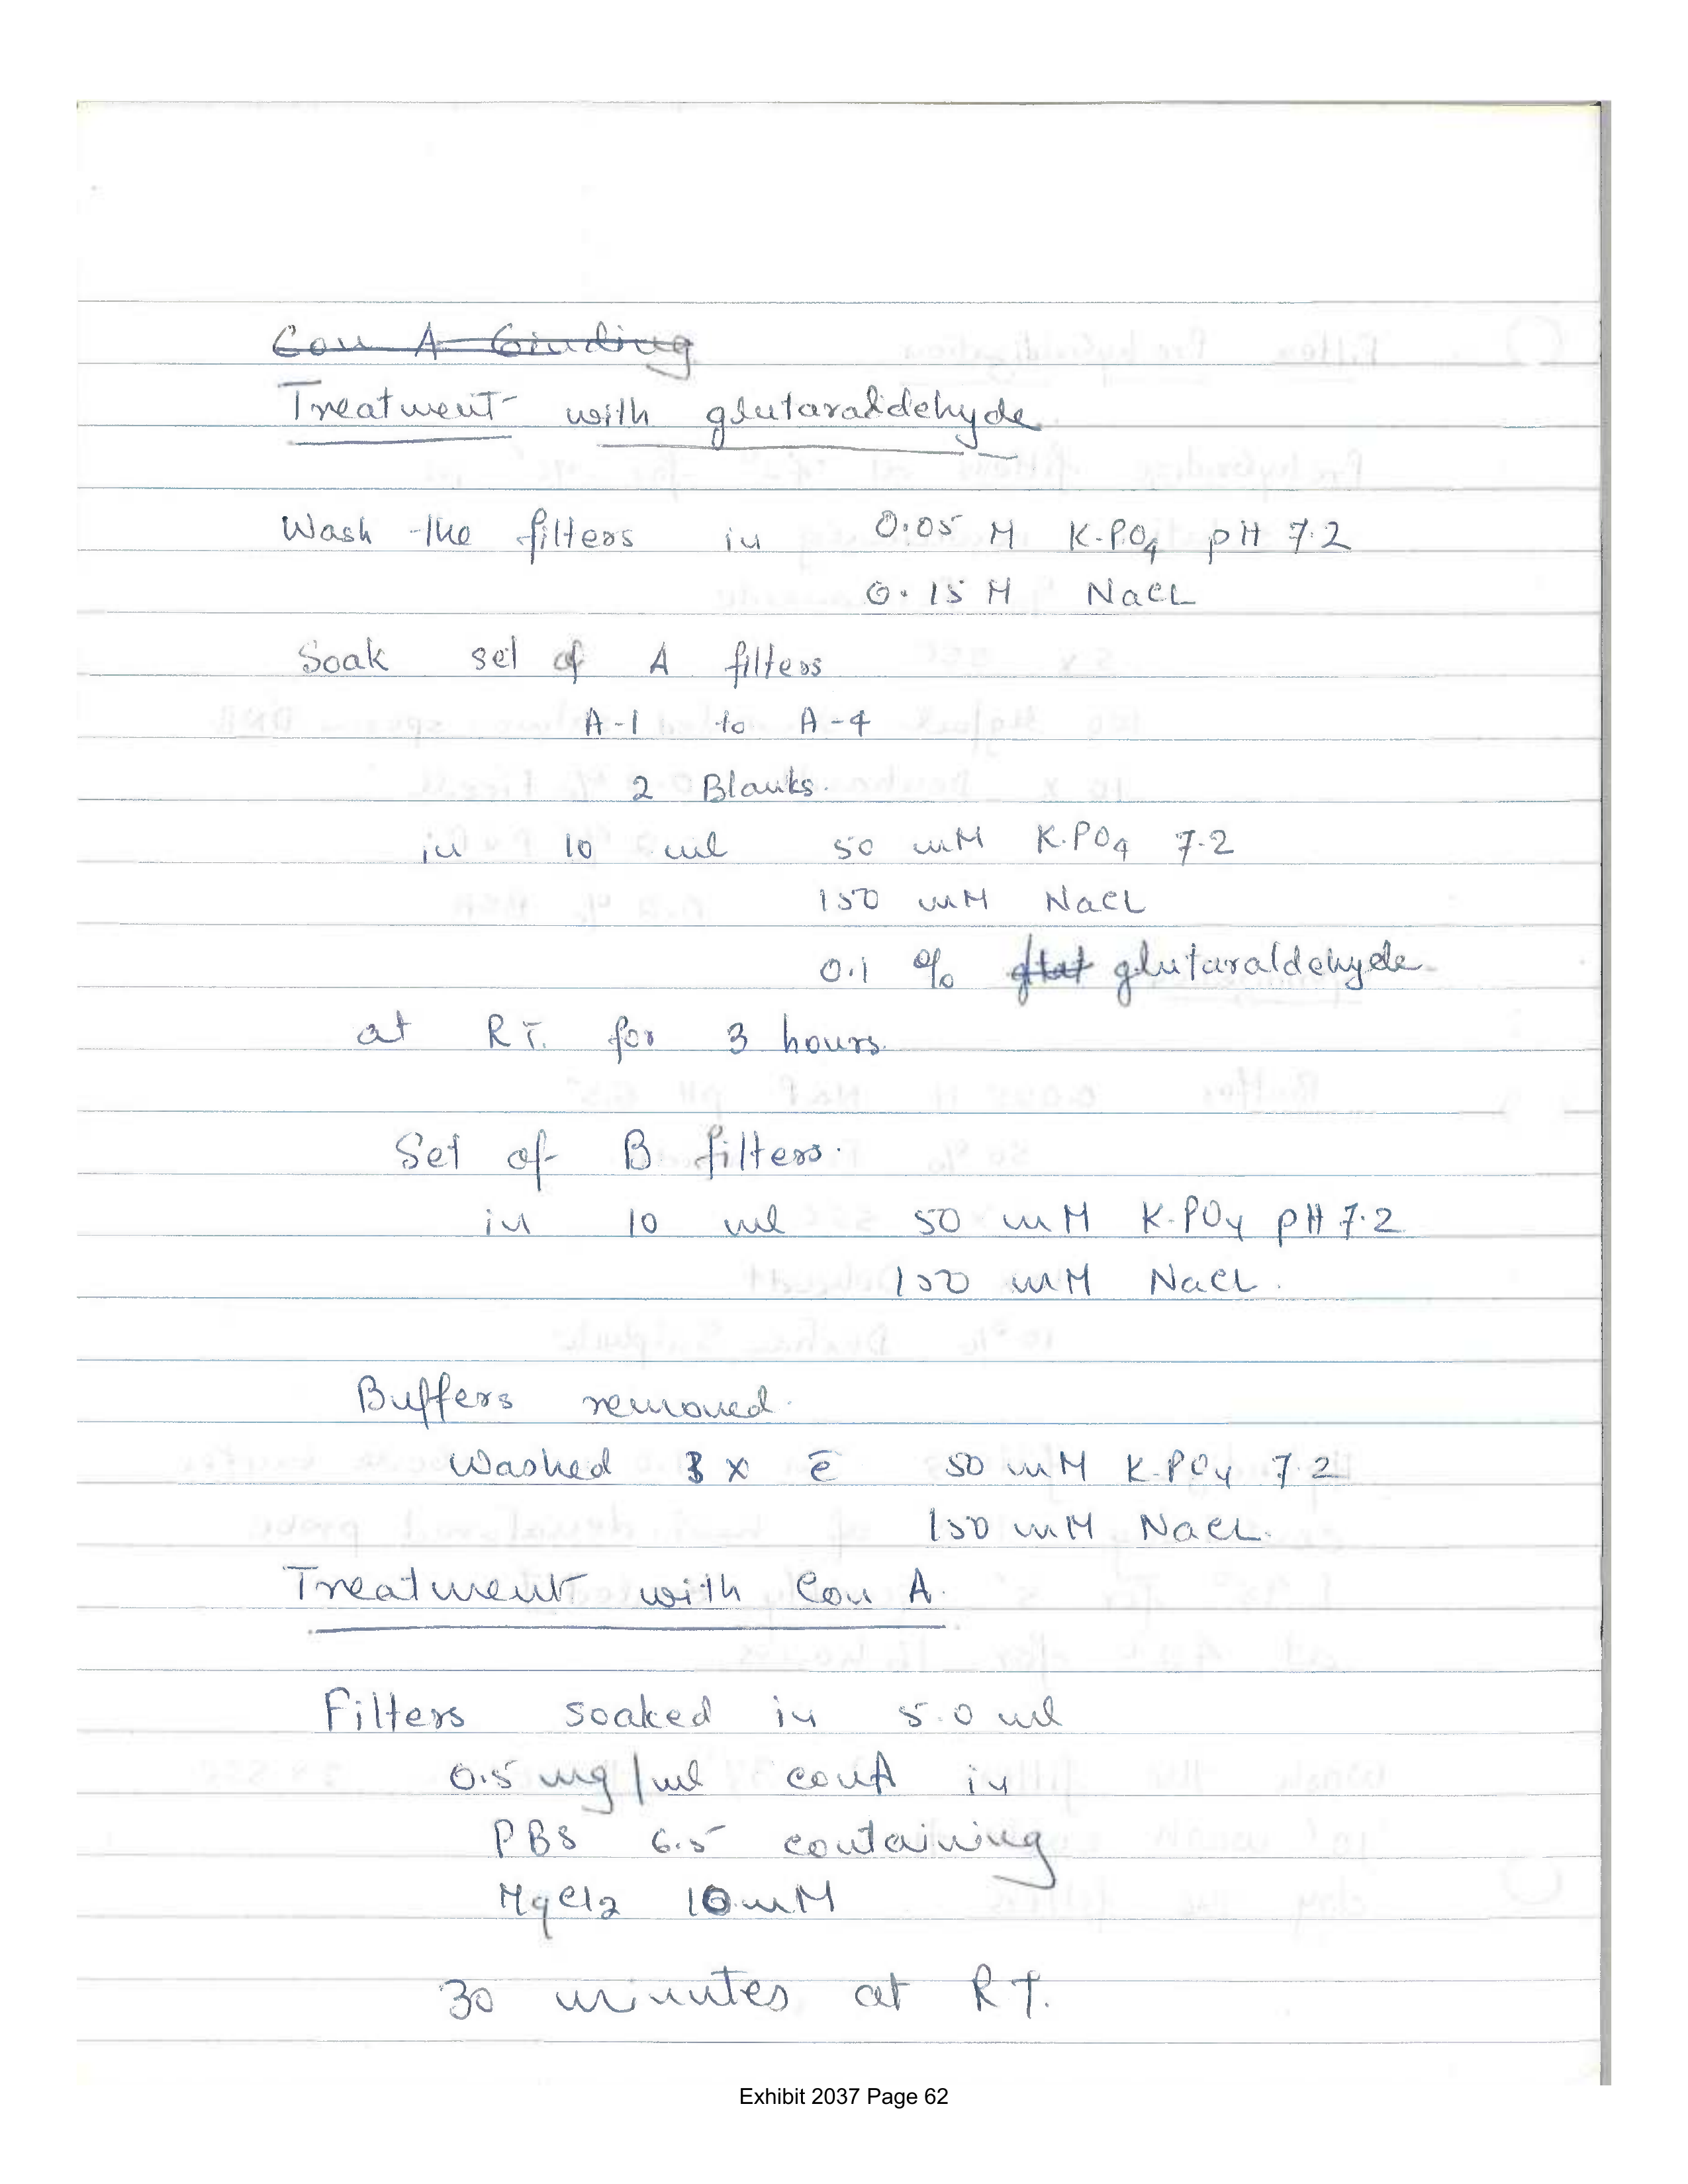 Con A binding
Treatment with glutaraldehyde
Wash the filters in 0.05 M K.PO4 pH 7.2
0.15 M NaCL
Soak set of A filters
A-1 to A-4
2 Blanks.
in 10 ml 50 mM K.PO4 7.2
150 mM NaCL
0.1 % glut glutaraldehyde
at RT. for 3 hours.
Set of B filters.
in 10 ml 50 mM K.PO4 pH 7.2
150 mM NaCL.
Buffers removed.
Washed 3 x c̄ 50 mM K.PO4 7.2
150 mM NaCL.
Treatment with Con A.
Filters soaked in 5.0 ml
0.5 mg/ml conA in
PBS 6.5 containing
MgCl2 10 mM
30 minutes at RT.
Exhibit 2037 Page 62